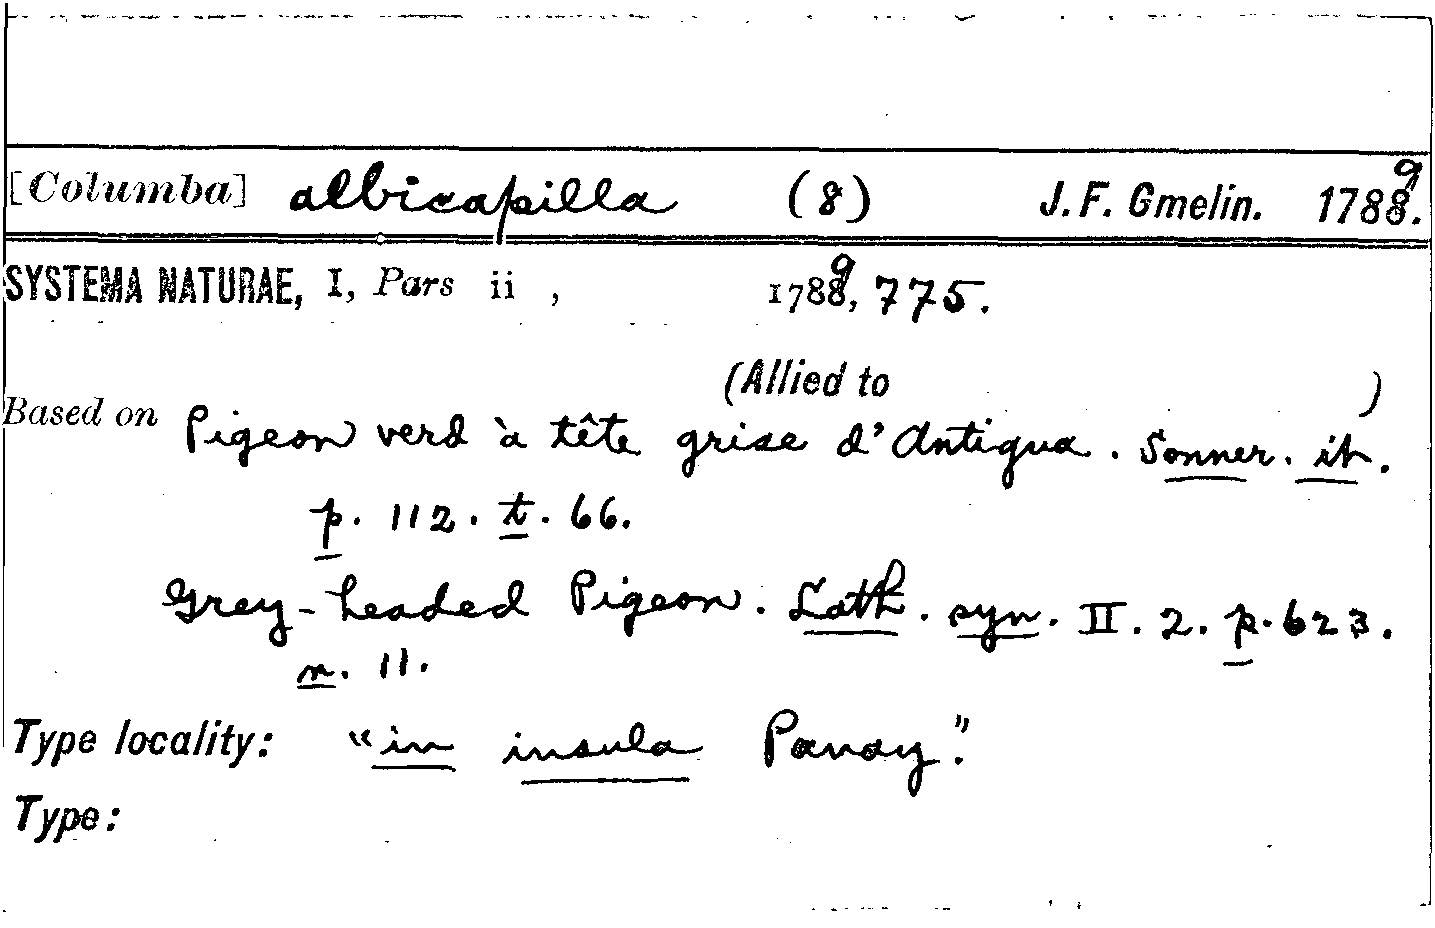 [Columba] albicapilla (8) J. F. Gmelin. 1789.
SYSTEMA NATURAE, I, Pars ii , 1789, 775.
(Allied to )
Based on Pigeon verd à tête grise d'Antigua. Sonner. it.
p. 112. t. 66.
Grey-headed Pigeon. Lath. syn. II. 2. p. 623.
n. 11.
Type locality: "in insula Panay".
Type: